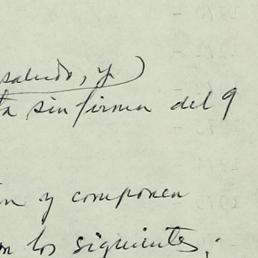 saludo, y
ta sin firma del 9
n y componen
on los siguientes;